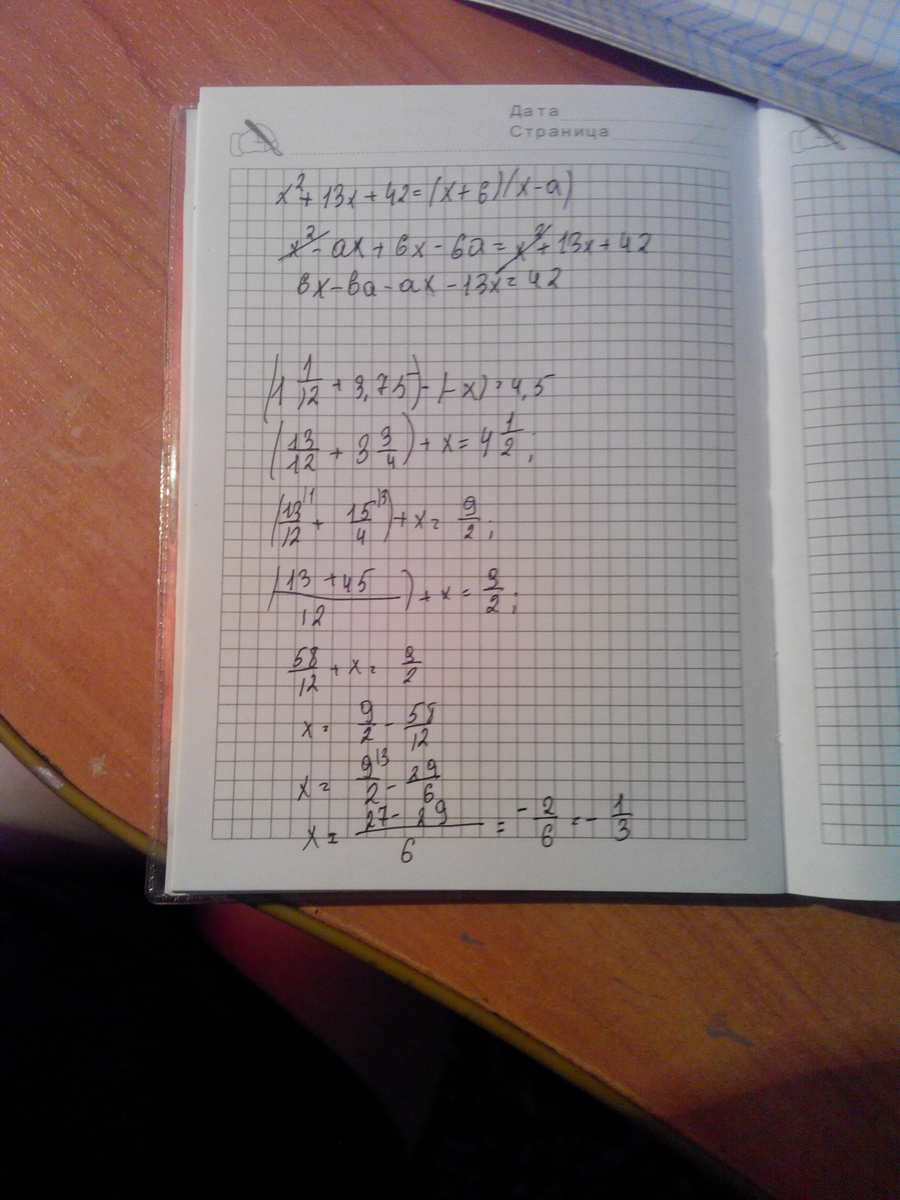 Дата
Страница
x² + 13x + 42 = (x + 6)(x - a)
x² - ax + 6x - 6a = x² + 13x + 42
6x - 6a - ax - 13x = 42
(1 1/12 + 3,75) - (-x) = 4,5
(13/12 + 3 3/4) + x = 4 1/2;
(13/12 |1 + 15/4 |3) + x = 9/2;
(13 + 45 / 12) + x = 9/2;
58/12 + x = 9/2
x = 9/2 - 58/12
x = 9/2 |3 - 29/6
x = 27 - 29 / 6 = - 2/6 = - 1/3